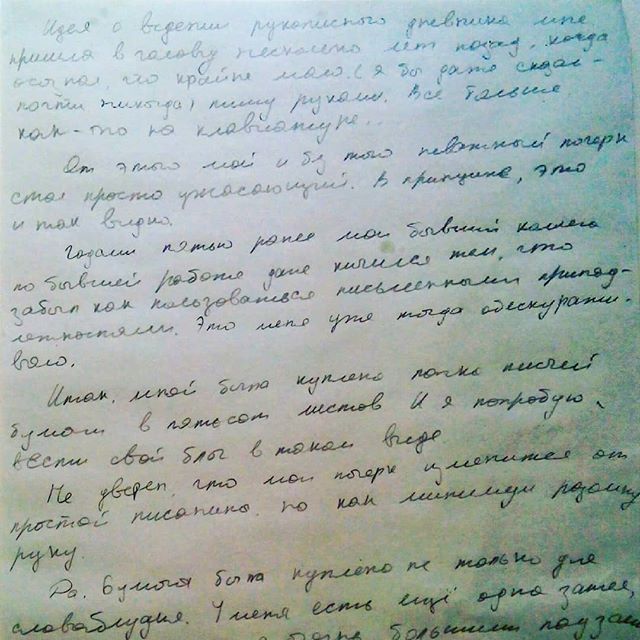 Идея о ведении рукописного дневника мне
пришла в голову несколько лет назад, когда
осознал, что крайне мало (я бы даже сказал -
почти никогда) пишу руками. Всё больше
как-то на клавиатуре...
От этого мой и без того неважный почерк
стал просто ужасающий. В принципе, это
и так видно.
Годами пятью ранее мой бывший коллега
по бывшей работе даже кичился тем, что
забыл как пользоваться письменными принад-
лежностями. Это меня уже тогда обескуражи-
вало.
Итак, мной была куплена пачка писчей
бумаги в пятьсот листов И я попробую
вести свой блог в таком виде
Не уверен, что мой почерк изменится от
простой писанины, но как минимум разомну
руку.
Да. Бумага была куплена не только для
словоблудия. У меня есть ещё одна затея,
большими